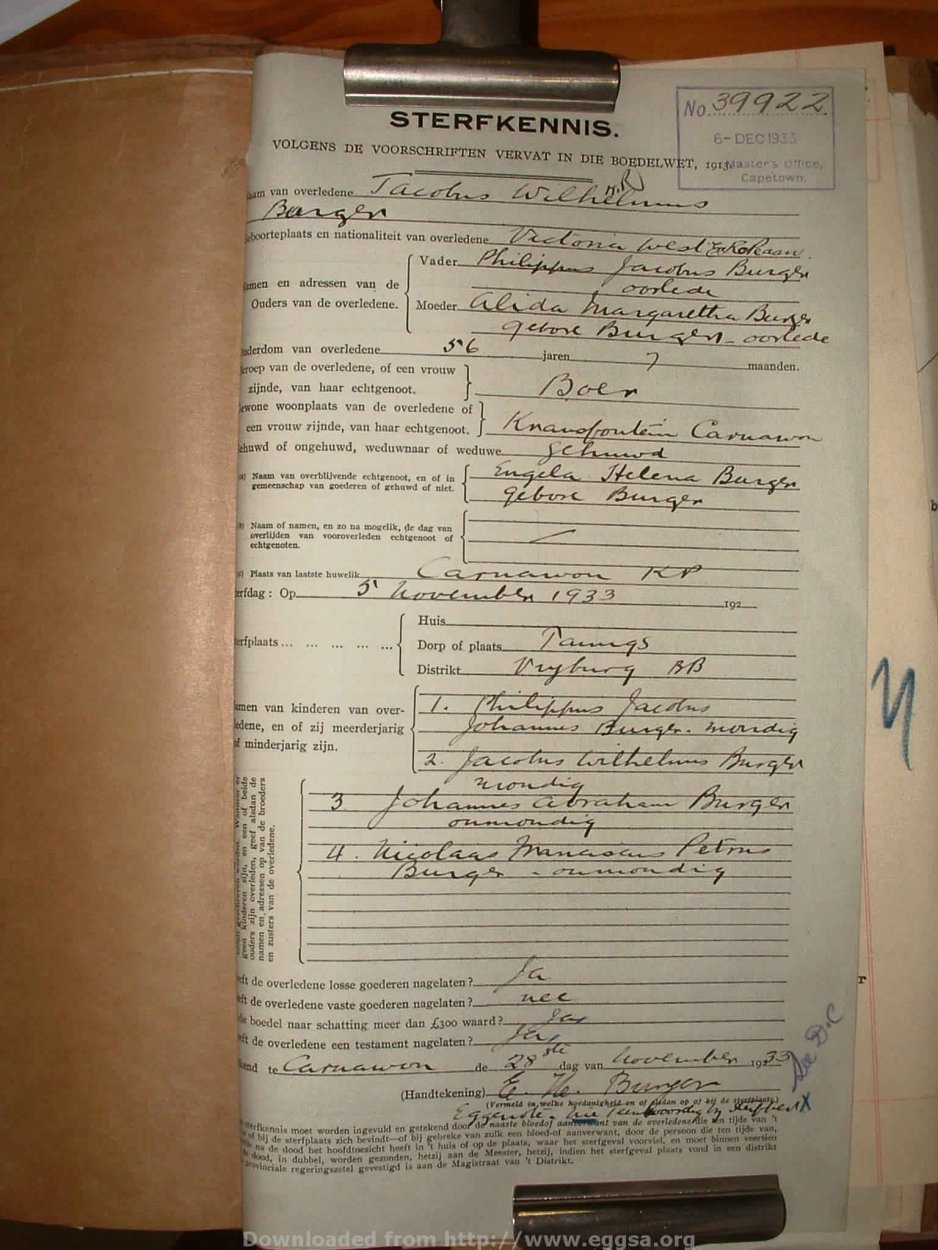 STERFKENNIS.
No. 39922
6-DEC 1933
Master's Office,
Capetown.
VOLGENS DE VOORSCHRIFTEN VERVAT IN DIE BOEDELWET, 1913.
aam van overledene Jacobus Wilhelmus
Burger
eboorteplaats en nationaliteit van overledene Victoria West
amen en adressen van de Ouders van de overledene.
Vader Philippus Jacobus Burger
oorlede
Moeder Alida Margaretha Burger
gebore Burger - oorlede
uderdom van overledene 56 jaren 7 maanden.
eroep van de overledene, of een vrouw
zijnde, van haar echtgenoot. Boer
ewone woonplaats van de overledene of
een vrouw zijnde, van haar echtgenoot. Kransfontein Carnarvon
ehuwd of ongehuwd, weduwnaar of weduwe gehuwd
(a) Naam van overblijvende echtgenoot, en of in
gemeenschap van goederen of gehuwd of niet.
Engela Helena Burger
gebore Burger
(b) Naam of namen, en zo na mogelik, de dag van
overlijden van vooroverleden echtgenoot of
echtgenoten.
(c) Plaats van laatste huwelik Carnarvon KP
erfdag : Op 5 November 1933 192
erfplaats ... ... ... ... ...
Huis
Dorp of plaats Taungs
Distrikt Vryburg BB
amen van kinderen van over-
edene, en of zij meerderjarig
of minderjarig zijn.
1. Philippus Jacobus
Johannes Burger - mondig
2. Jacobus Wilhelmus Burger
mondig
3 Johannes Abraham Burger
onmondig
4. Nicolaas Franciscus Petrus
Burger - onmondig
geen kinderen zijn, en een of beide
ouders zijn overleden, geef alsdan de
namen en adressen op van de broeders
en zusters van de overledene.
eft de overledene losse goederen nagelaten ? Ja
eft de overledene vaste goederen nagelaten ? nee
de boedel naar schatting meer dan £300 waard ? Ja
eft de overledene een testament nagelaten ? Ja
kend te Carnarvon de 28ste dag van November 1933
See D.C
(Handtekening) E. H. Burger
(Vermeld in welke hoedanigheid en of aldan op of bij de sterfplaats)
Eggenote. nie teenwoordig by sterfbed X
sterfkennis moet worden ingevuld en getekend door de naaste bloedof aanverwant van de overledene die ten tijde van 't
of bij de sterfplaats zich bevindt—of bij gebreke van zulk een bloed-of aanverwant, door de persoon die ten tijde van,
na de dood het hoofdtoezicht heeft in 't huis of op de plaats, waar het sterfgeval voorviel, en moet binnen veertien
de dood, in dubbel, worden gezonden, hetzij aan de Meester, hetzij, indien het sterfgeval plaats vond in een distrikt
provinciale regeringszetel gevestigd is aan de Magistraat van 't Distrikt.
Downloaded from http://www.eggsa.org